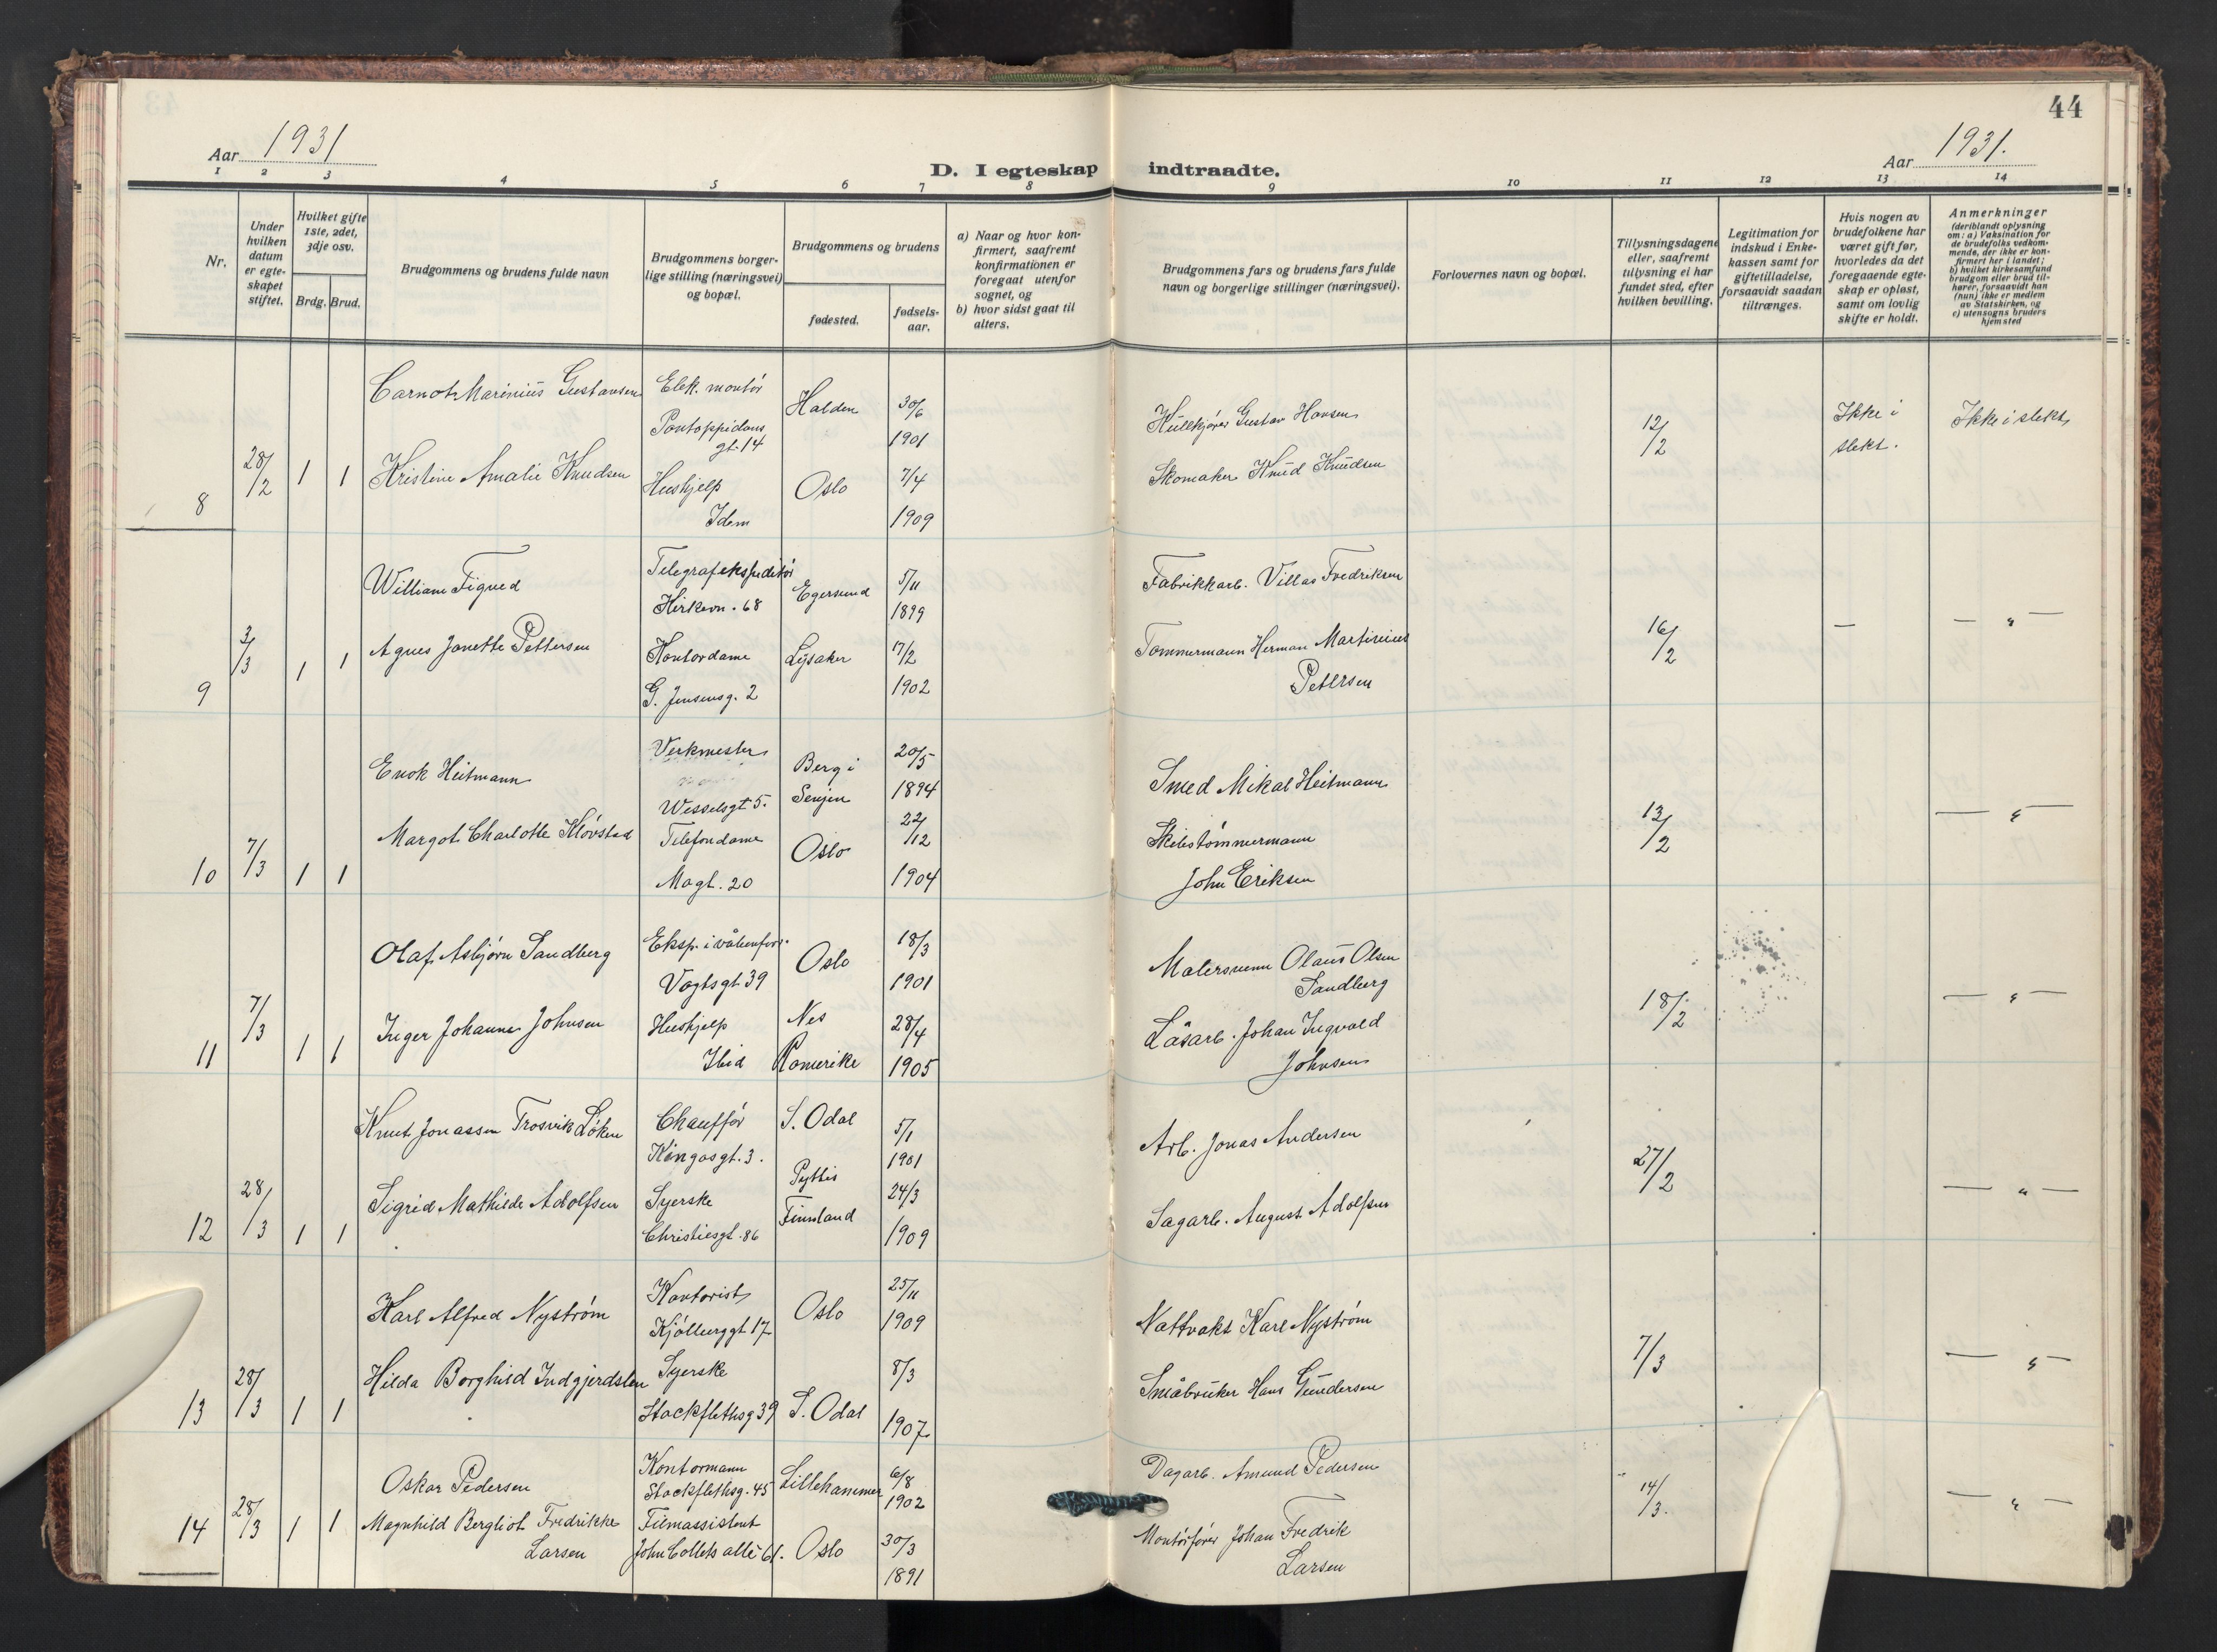 44
Aar 1931
D. I egteskap indtraadte.
Aar 1931.
1 2 3 4 5 6 7 8 9 10 11 12 13 14
Nr.
Under hvilken datum er egte-skapet stiftet.
Hvilket gifte 1ste, 2det, 3dje osv.
Brdg. Brud.
Brudgommens og brudens fulde navn
Brudgommens borger-
lige stilling (næringsvei)
og bopæl.
Brudgommens og brudens
fødested.
fødsels-
aar.
a) Naar og hvor kon-
firmert, saafremt
konfirmationen er
foregaat utenfor
sognet, og
b) hvor sidst gaat til
alters.
Brudgommens fars og brudens fars fulde
navn og borgerlige stillinger (næringsvei).
Forlovernes navn og bopæl.
Tillysningsdagene
eller, saafremt
tillysning ei har
fundet sted, efter
hvilken bevilling.
Legitimation for
indskud i Enke-
kassen samt for
giftetilladelse,
forsaavidt saadan
tiltrænges.
Hvis nogen av
brudefolkene har
været gift før,
hvorledes da det
foregaaende egte-
skap er opløst,
samt om lovlig
skifte er holdt.
Anmerkninger
(deriblandt oplysning
om: a) Vaksination for
de brudefolks vedkom-
mende, der ikke er kon-
firmert her i landet;
b) hvilket kirkesamfund
brudgom eller brud til-
hører, forsaavidt han
(hun) ikke er medlem
av Statskirken, og
c) utensogns bruders
hjemsted
8 28/2 1 1
Carnot Marinius Gustavsen
Elek. montør
Pontoppidans
gt. 14
Halden
30/6
1901
Kullkjører Gustav Hansen
12/2
Ikke i
slekt.
Ikke i slekt
Kristine Amalie Knudsen
Hushjelp
Idem
Oslo
7/4
1909
Skomaker Knud Knudsen
9 3/3 1 1
William Figved
Telegrafekspeditør
Kirkevn. 68
Egersund
5/11
1899
Fabrikkarb. Villas Fredriksen
16/2
— — " —
Agnes Janette Pettersen
Kontordame
G. Jensensg. 2
Lysaker
17/2
1902
Tømmermann Herman Martinius
Petersen
10 7/3 1 1
Enok Heitmann
Verkmester
Wesselsgt 5.
Berg i
Senjen
20/5
1894
Smed Mikal Heitmann
13/2
— " —
Margot Charlotte Kløvstad
Telefondame
Magt. 20
Oslo
22/12
1904
Skibstømmermann
John Eriksen
11 7/3 1 1
Olaf Asbjørn Sandberg
Eksp. i våbenforr.
Vogtsgt. 39
Oslo
18/3
1901
Malersvenn Olaus Olsen
Sandberg
18/2
— " —
Inger Johanne Johnsen
Hushjelp
Ibid
Nes
Romerike
28/4
1905
Låsarb. Johan Ingvald
Johnsen
12 28/3 1 1
Knut Jonassen Trosvik Løken
Chauffør
Kongosgt. 3.
S. Odal
5/1
1901
Arb. Jonas Andersen
27/2
— " —
Sigrid Mathilde Adolfsen
Syerske
Christiesgt. 86
Pyttis
Finnland
24/3
1909
Sagarb. August Adolfsen
13 28/3 1 1
Karl Alfred Nystrøm
Kontorist
Kjølberggt 17
Oslo
25/11
1909
Nattvakt Karl Nystrøm
7/3
— " —
Hilda Borghild Indgjerdslen
Syerske
Stockflethsg 39
S. Odal
8/3
1907
Småbruker Hans Gundersen
14 28/3 1 1
Oskar Pedersen
Kontormann
Stockflethsg. 45
Lillehammer
6/8
1902
Dagarb. Amund Pedersen
14/3.
— " —
Magnhild Bergliot Fredrikke
Larsen
Filmassistent
John Collets allé 61.
Oslo
30/3
1891
Montørfører Johan Fredrik
Larsen